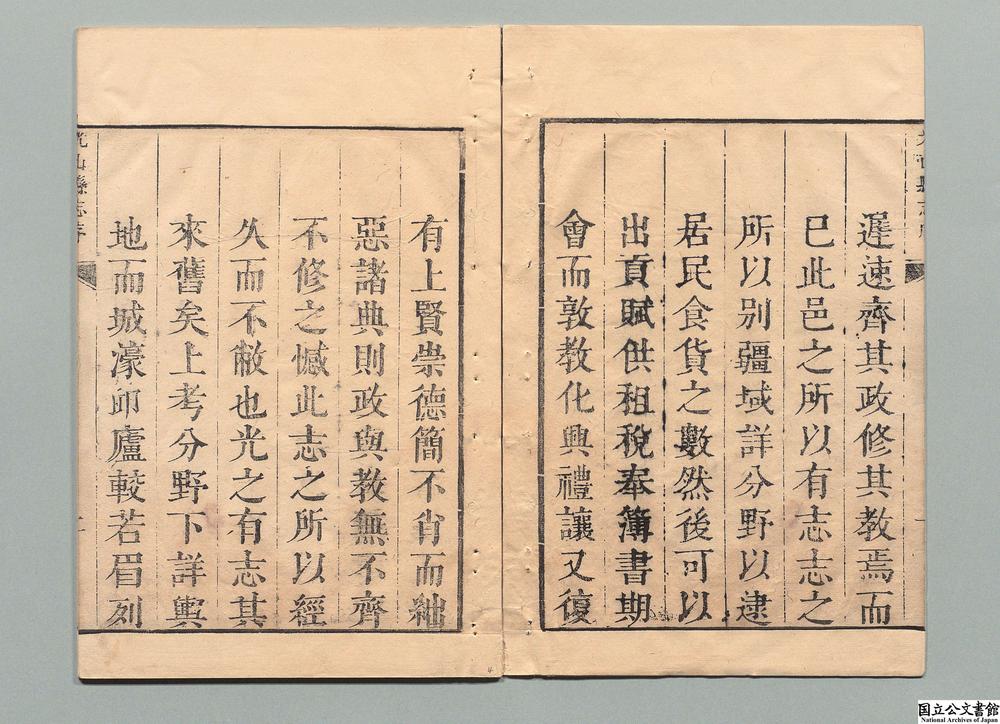 遲速齊其政修其教焉而
已此邑之所以有志志之
所以别疆域詳分野以逮
居民食貨之數然後可以
出貢賦供租稅奉簿書期
會而敦教化興禮讓又復
有上賢崇德簡不肖而絀
惡諸典則政與教無不齊
不修之憾此志之所以經
久而不敝也光之有志其
來舊矣上考分野下詳輿
地而城濠卭廬較若眉列
光山縣志序
国立公文書館
National Archives of Japan